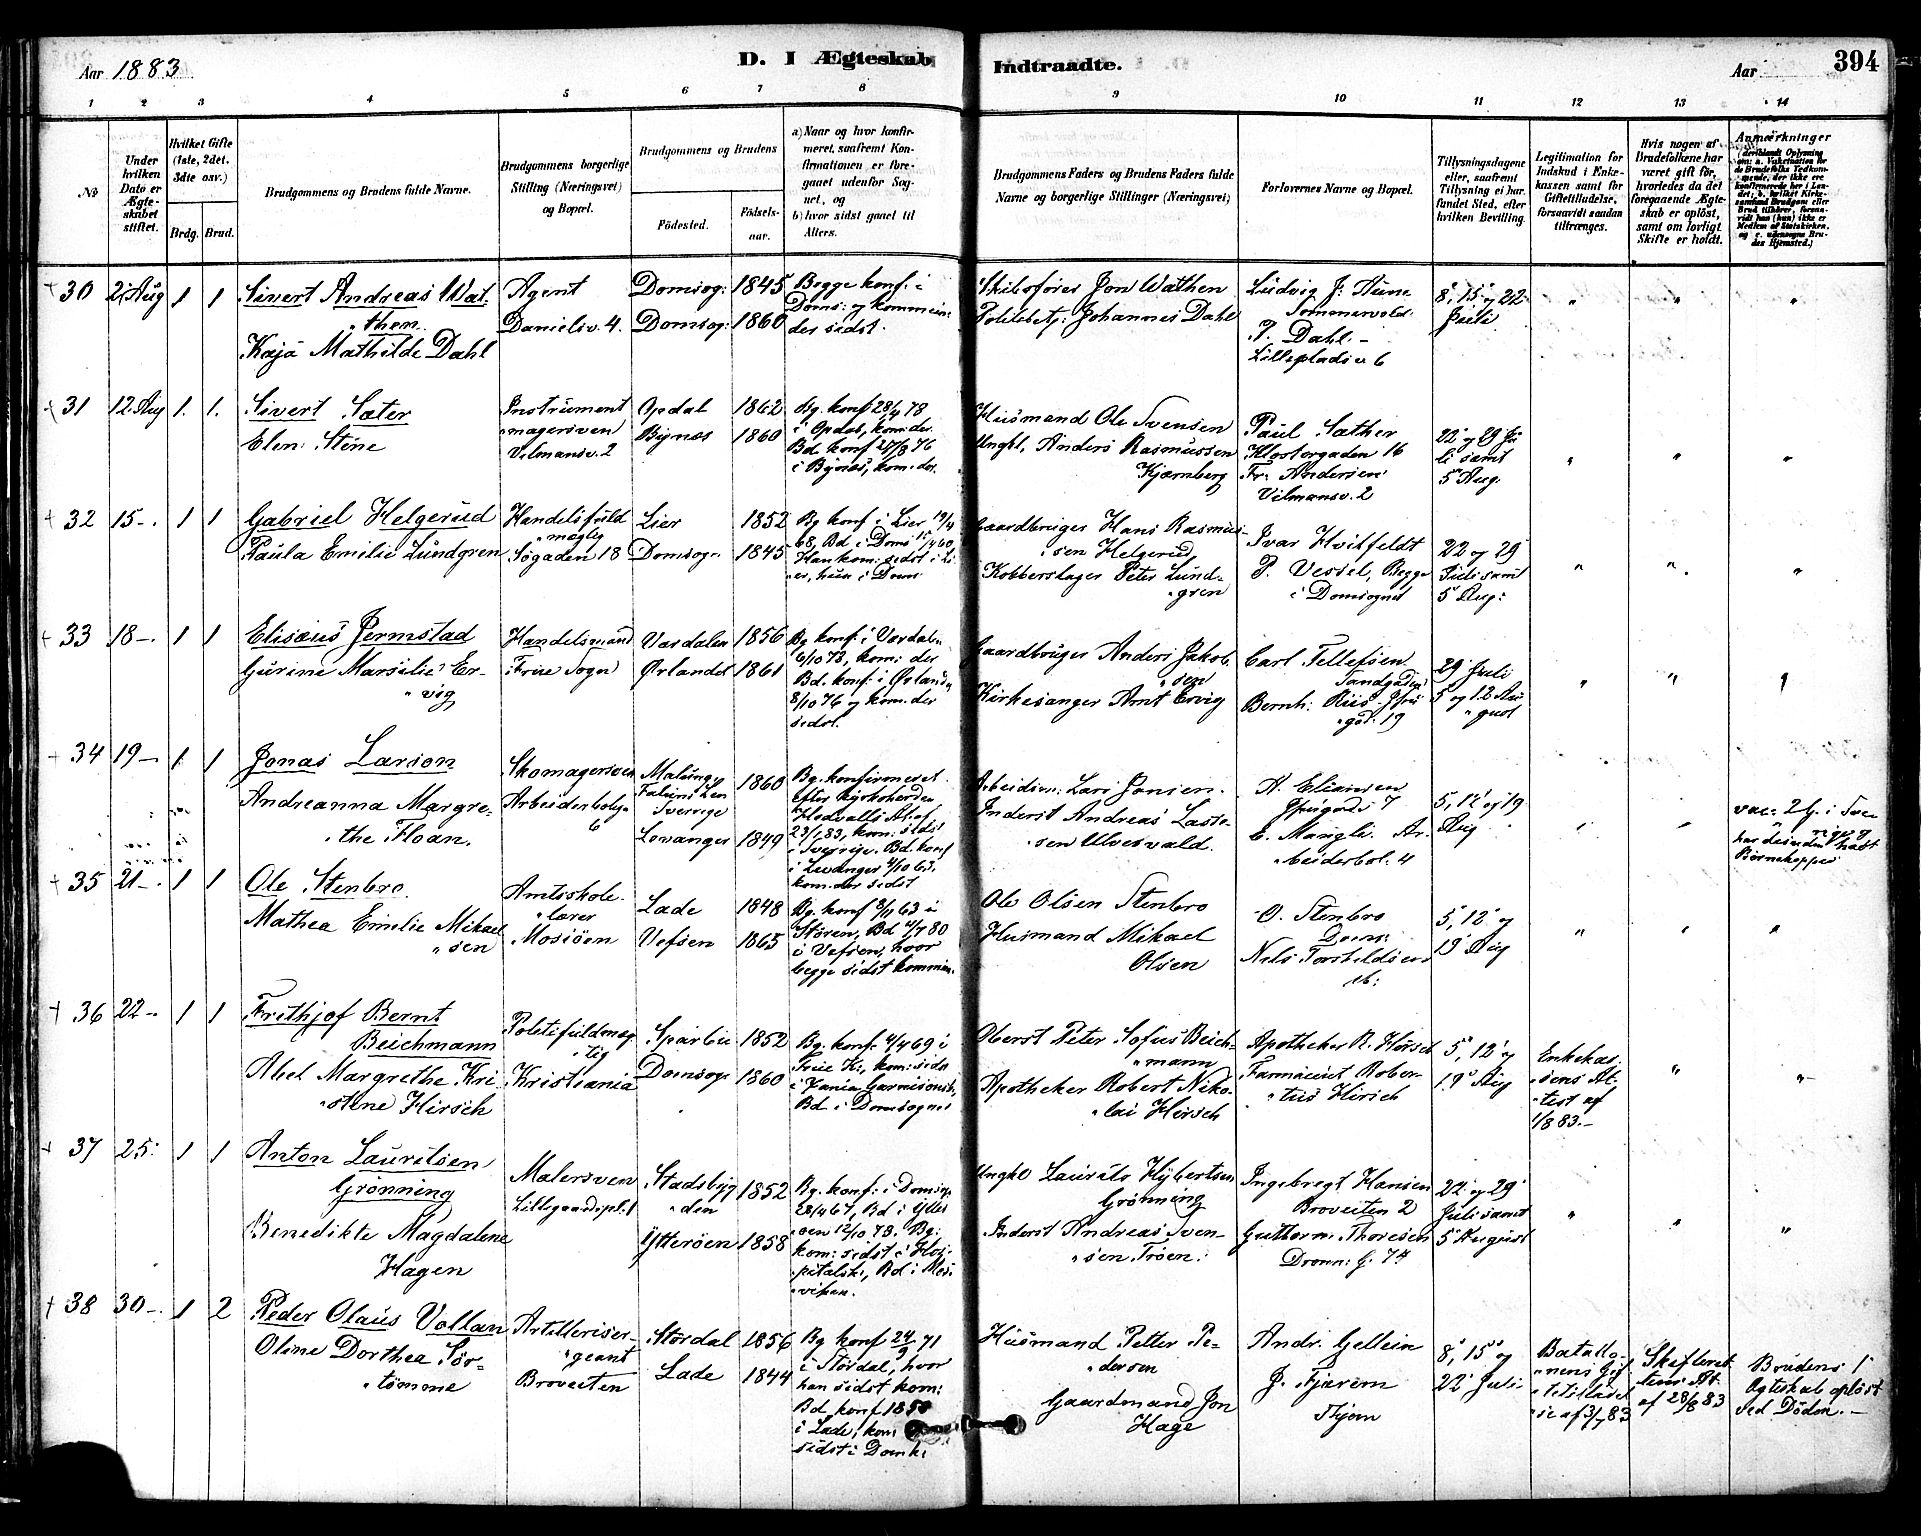 Aar 1883
D. I Ægteskab
Indtraadte.
Aar
394
1 2 3 4 5 6 7 8 9 10 11 12 13 14
No
Under hvilken Dato er Ægteskabet stiftet.
Hvilket Gifte (1ste, 2det. 3die osv.)
Brdg. Brud.
Brudgommens og Brudens fulde Navne.
Brudgommens borgerlige Stilling (Næringsvei) og Bopæl.
Brudgommens og Brudens
Fødested.
Fødselsaar.
a) Naar og hvor konfirmeret, saafremt Konfirmationen er foregaaet udenfor Sognet, og
b) hvor sidst gaaet til Alters.
Brudgommens Faders og Brudens Faders fulde Navne og borgerlige Stillinger (Næringsvei)
Forlovernes Navne og Bopæl.
Tillysningsdagene eller, saafremt Tillysning ei har fundet Sted, efter hvilken Bevilling.
Legitimation for Indskud i Enkekassen samt for Giftetilladelse, forsaavidt saadan tiltrænges.
Hvis nogen af Brudefolkene har været gift før, hvorledes da det foregaaende Ægteskab er opløst, samt om lovligt Skifte er holdt.
Anmærkninger
30
2 Aug
1 1
Sivert Andreas Wat-
them
Kaja Mathilde Dahl
Agent
Danielsv. 4.
Domsog: 1845
Domsog: 1860
Begge konf: i
Doms: og kommun
der sidst.
Skibsfører Jon Wathen
Politibetj: Johannes Dahl
Ludvig J: Aune
P. Dahl
Lillepladsv 6
8, 15 og 22
Juli
31
12 Aug
1. 1.
Sivert Sæter
Elen: Stine
Instrument
magersven
Vilmansv. 2
Opdal 1862
Bynæs 1860
Bg. konf 28/4 78
i Opdal, kom: der
i Bynæs, kom: der.
Husmand Ole Svensen
Ungkl. Anders Rasmussen
Kjærnberg
Paul Sæther
Klostergaden 16
Fr: Andersen
Vilmansv. 2
22 og 29 Ju
li samt
5 Aug.
32
15 -.
1 1
Gabriel Helgerud
Paula Emilie Lundgren
Handelsfuld
mægtig
Søgaden 18
Lier 1852
Domsogn 1845
Bg konf i Lier 19/4
68, Bd i Doms 15/4 60
Han kom: sidst i Li
er, hun i Doms
Gaardbruger Hans Rasmus-
sen Helgerud
Kobberslager Peter Lund-
gren
Ivar Hvitfeldt
P. Vessel, Begge
i Domsognet
22 og 29
Juli samt
5 Aug:
33
18 -.
1 1
Elisæus Jermstad
Gurine Marselie Er-
vig
Handelsmand
Frue Sogn
Værdalen 1856
Ørlandet 1861
Bg konf: i Værdalen
6/10 72, kom: der
Bd. konf: i Ørlandet
8/10 76 og kom. der
sidst.
Gaardbruger Anders Jakob
sen
Kirkesanger Arnt Ervig
Carl Tellefsen
Sandgaden
Bernh: Riis
gad. 19
29 Juli
5 og 12 Au
gust
34
19 -
1 1
Jonas Larson
Andreanna Margre-
the Floan.
Skomagersven
Arbeiderbolig
6
Malung
Faluns Len
Sverrige
1860
Levanger 1849
Bg. konfirmeret
efter kyrkoherden
Hedvalls At. af
23/1 83, kom: sidst
i Sverrige. Bd. konf
i Levanger 4/10 63.
kom. der sidst
Arbeidsm: Lars Jonsen.
Inderst Andreas Lasse-
sen Ulvesvald.
K. Eliassen
E. Mangli. Ar-
beiderbol. 4
5, 12 og 19
Aug
vac. 2 g. i Sve
rige og
har desuden havt
Børnekopper
35
21 -.
1 1
Ole Stenbro
Mathea Emelie Mikael
sen
Amtsskole
lærer
Mosjøen
Lade 1848
Vefsen 1865
Bg. konf 8/11 63 i
Støren, Bd 4/7 80
i Vefsen, hvor
begge sidst kommun.
Ole Olsen Stenbro
Husmand Mikael
Olsen
O. Stenbro
Doms:
Nils Torkildsen
ib:
5, 12 og
19 Aug
36
22 -.
1 1
Frithjof Bernt
Beichmann
Abel Margrethe Kri
stine Hirsch
Politifuldmæg
tig
Kristiania
Sparbu 1852
Domsog 1860
Bg. konf: 4/4 69 i
Frue K:, kom: sidst
i Xania Garnisonsk,
Bd i Domsognet
Oberst Peter Sofus Beich-
mann
Apotheker Robert Niko-
lai Hirsch
Apotheker R. Hirsch
Farmaceut Rober-
tus Hirsch
5, 12 og
19 Aug
Enkekas
sens At-
test af
1/8 83. -
37
25:
1 1
Anton Lauritsen
Grønning
Benedikte Magdalene
Hagen
Malersven
Lillegaardspl. 1
Stadsbyg
den
1852
Ytterøen 1858
Bg. konf: i Domsog
28/4 67, Bd i Ytter
øen 12/10 73. Bg:
kom: sidst i Hos-
pitalsk:, Bd i Mos
viken.
Ungkl Laurits Hybertsen
Grønning
Inderst Andreas Sven-
sen Troen:
Ingebregt Hansen
Broveiten 2
Guttorm Thoresen
Dronn: G. 7A
22 og 29
Juli samt
5 August
38
30 -.
1 2
Peder Olaus Vollan
Oline Dorthea Sør-
tømme
Artilleriser-
geant
Broveiten
Størdal 1856
Lade 1844
Bg konf 24/9 71
i Størdal, hvor
han sidst kom:
Bd konf 1859
i Lade, kom
sidst i Domk:
Husmand Petter Pe-
dersen
Gaardmand Jon
Hage
Andr: Gellein
J. Fjærem
8, 15 og
22 Juli
Batallio-
nens Gif
tetilladel
se af 3/7 83
Skifteret
tens At.
af 28/8 83
Brudens 1
Ægteskab opløst
ved Døden. -